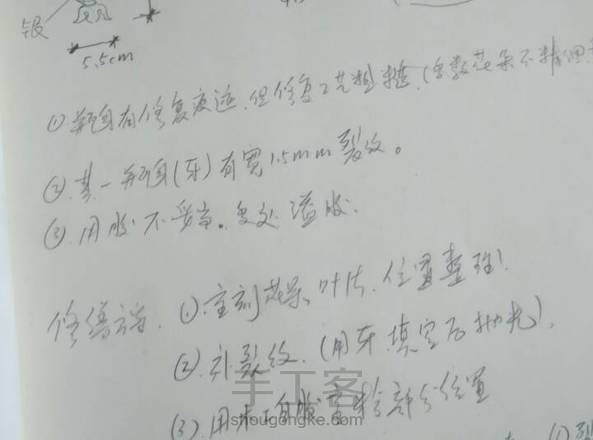 银
5.5cm
①瓶身有修复痕迹，但修复工艺粗糙，(多数花朵不精细
②其一瓶身(牙)有宽1.5mm裂纹。
③用胶不妥当。多处溢胶.
修缮方案. ①重刻花朵、叶片，位置整理！
②补裂纹.(用牙填实后抛光).
(3).用木工白胶 部分位置
手工客
shougongke.com